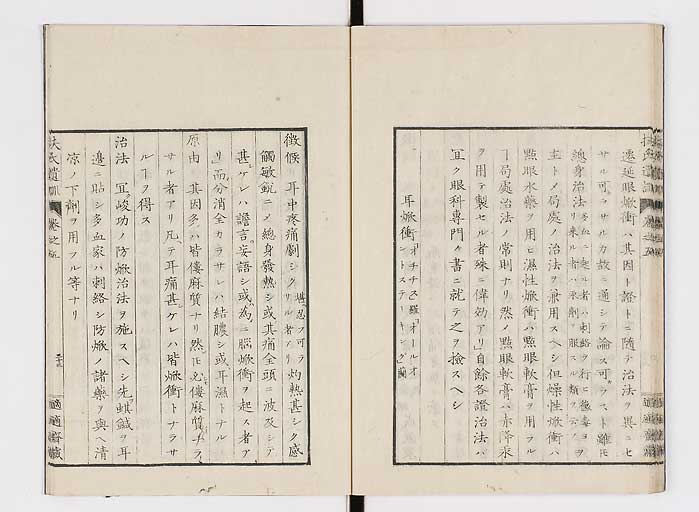 遷延眼焮衝ハ其因ト證トニ随テ治法ヲ異ニセ
サル可ラサルカ故ニ通シテ論ス可ラスト雖モ
總身治法
主トメ局處ノ治法ヲ兼用スヘシ但燥性焮衝ハ
點眼水藥ヲ用ヒ濕性焮衝ハ點眼軟膏ヲ用フル
ヿ局處治法ノ常則ナリ然ノ點眼軟膏ハ赤降汞
ヲ用テ製セル者殊ニ偉効アリ自餘各證治法ハ
宜ク眼科専門ノ書ニ就テ之ヲ撿スヘシ
耳焮衝 オチチス羅 オールオントステーキング蘭
徴候 耳中疼痛劇シク堪忍ス可ラサル者アリ灼熱甚シク感
觸敏鋭ニメ總身發熱シ或其痛全頭ニ波及シテ
甚ケレハ譫言妄語シ或為ニ腦焮衝ヲ起ス者ア
リ而分消全カラサレハ結膿シ或耳濕トナル
原由 其因多ハ皆僂麻質ナリ然モ必僂麻質ナラ
サル者アリ凡テ耳痛甚ケレハ皆焮衝トナラサ
ルヿヲ得ス
治法 宜峻功ノ防焮治法ヲ施スヘシ先蜞鍼ヲ耳
邊ニ貼シ多血家ハ刺絡シ防焮ノ諸藥ヲ與ヘ清
凉ノ下劑ヲ用フル等ナリ
扶氏遺訓 卷之五
適適齋藏